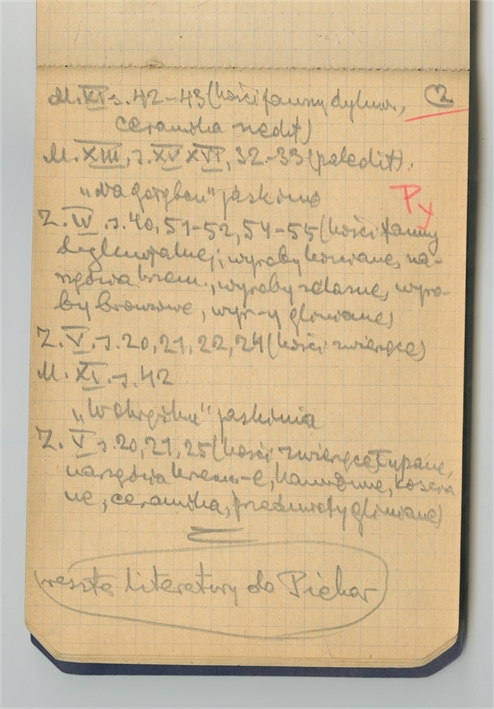 M. XI s. 42-43 (kości fauny dyluw., (2
ceramika neolit)
M. XIII, s. XV XVI, 32-33 (paleolit).
"Na gołąbcu" jaskinia
Py
Z. IV s. 40, 51-52, 54-55 (kości fauny
dyluwialnej, wyroby kościane, na-
rzędzia krzem., wyroby żelazne, wyro-
by bronzowe, wyr-y gliniane)
Z. V. s. 20, 21, 22, 24 (kości zwierzęce)
M. XI. s. 42
jaskinia
Z. V s. 20, 21, 25 (kości zwierzęce łupane,
narzędzia krzem-e, kamienne, kościa
ne, ceramika, przedmioty gliniane)
reszta literatury do Piekar